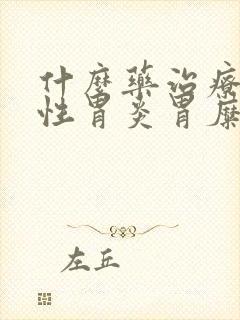 什麼藥治療
性胃炎胃糜
左丘